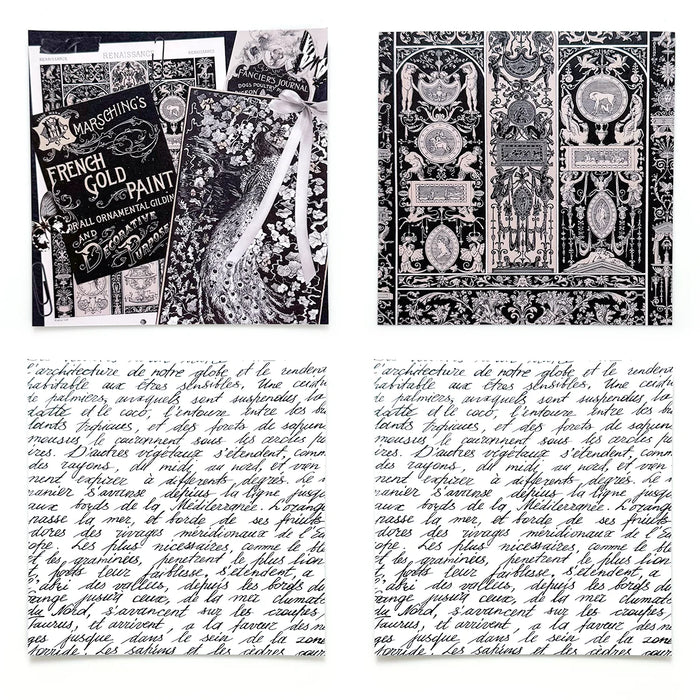 RENAISSANCE.
RENAISSANCE
RENAISSANCE.
FANCIER'S JOURNAL
DOGS POULTRY
MARSCHING'S
FRENCH
GOLD
PAINT
FOR ALL ORNAMENTAL GILDIN
AND DECORATIVE
PURPOSE
l'architecture de notre globe et le renden
habitable aux êtres sensibles. Une ceintu
de palmiers, auxquels sont suspendus la
datte et le coco, l'entoure entre les bu
lants tropiques, et des forets de safun
mousus le couronnent sous les cercles po
ires. D'autres végétaux s'étendent, comm
des rayons, du midi au nord, et vien
nent expirer à différents degrés. Le
manier s'avanse depius la ligne jusqu
aux bords de la Méditerranée. L'orange
passe la mer, et borde de ses fruits
dores des rivages méridionaux de l'Eu
ope. Les plus nicessaires, comme le ble
et les graminées, penetrent le plus loin
t forts leur faiblasse, s'étendent, a
l'abri des vallées, depuis les bords du
Gange jusqu'à ceux de la mer Clumate
du Nord, s'avancent sur les croupes
Taurus, et arrivent a la faveur des n
ges jusque dans le sein de la zone
torride. Les sapins et les cèdres cour
l'architecture de notre globe et le renden
habitable aux êtres sensibles. Une ceintu
de palmiers, auxquels sont suspendus la
datte et le coco, l'entoure entre les bu
lants tropiques, et des forets de safun
mousus le couronnent sous les cercles po
ires. D'autres végétaux s'étendent, comm
des rayons, du midi au nord, et vien
nent expirer à différents degrés. Le
manier s'avanse depius la ligne jusqu
aux bords de la Méditerranée. L'orange
passe la mer, et borde de ses fruits
dores des rivages méridionaux de l'Eu
ope. Les plus nicessaires, comme le ble
et les graminées, penetrent le plus lion
t forts leur faiblasse, s'étendent, a
l'abri des vallées, depuis les bords du
ceux de la mer
du Nord, s'avancent sur les croupes
Taurus, et arrivent a la faveur des n
ges jusque dans le sein de la zone
torride. Les sapins et les cèdres cour